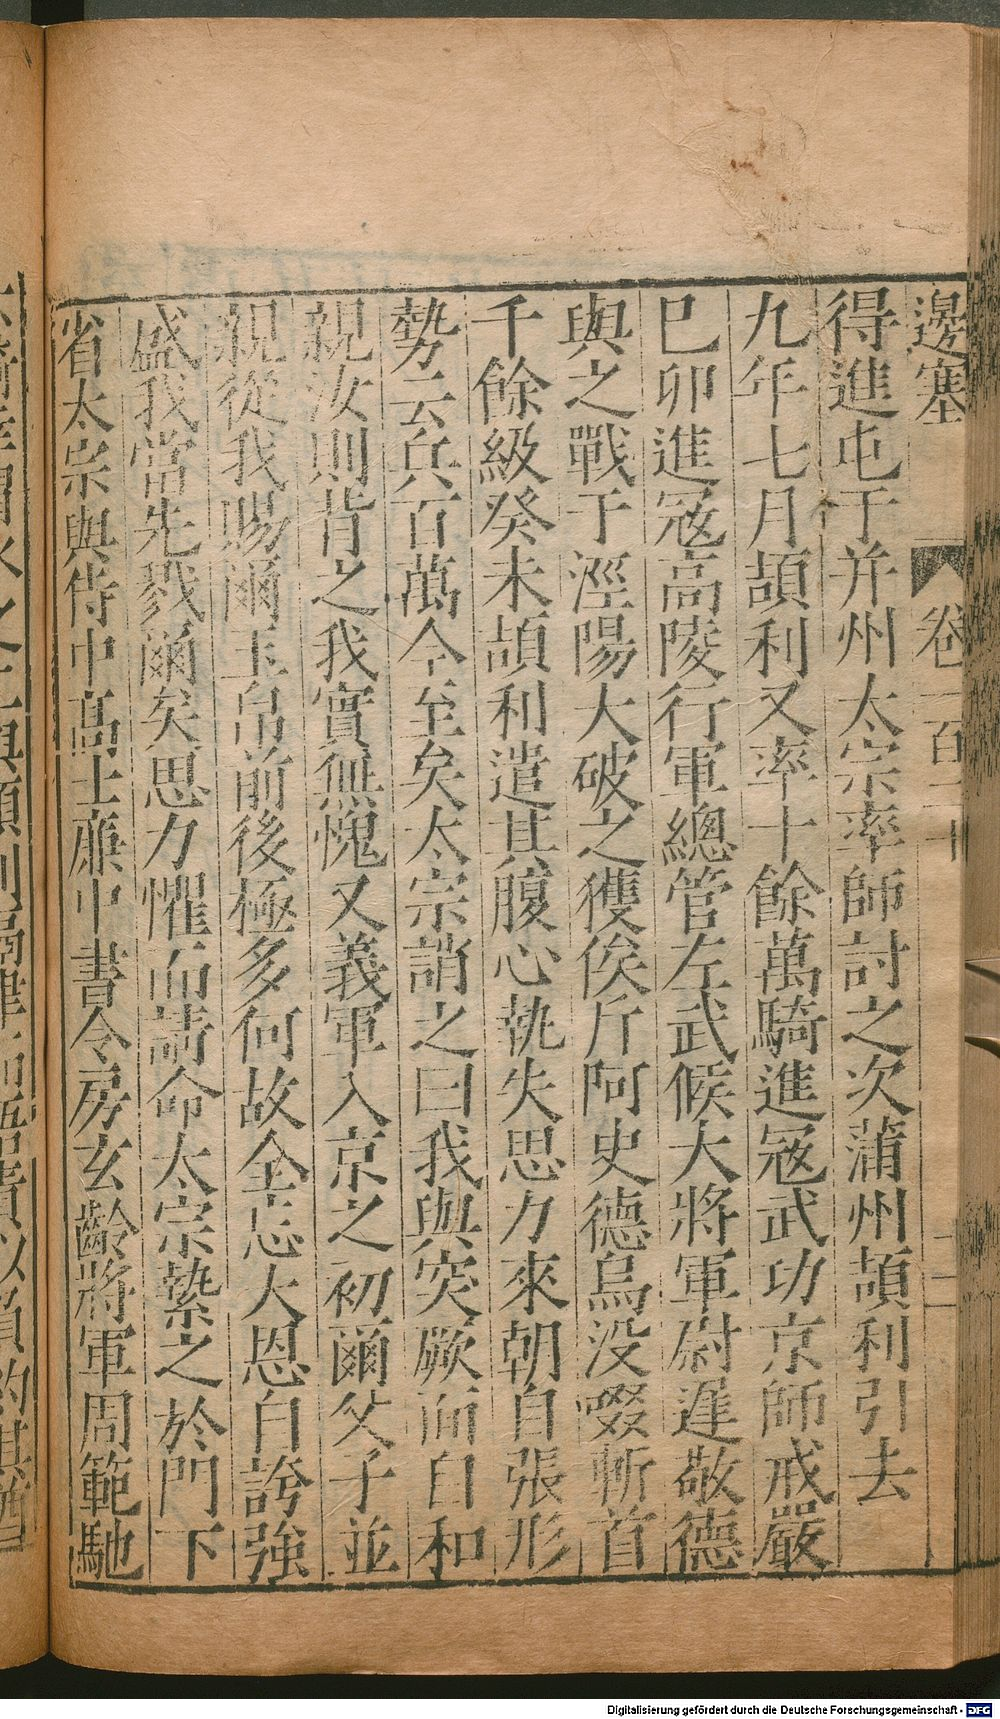 邊塞 卷一百二十
得進屯于并州太宗率師討之次蒲州頡利引去
九年七月頡利又率十餘萬騎進冦武功京師戒嚴
巳卯進冦高陵行軍總管左武候大將軍尉遲敬德
與之戰于涇陽大破之獲俟斤阿史德烏没啜斬首
千餘級癸未頡利遣其腹心執失思力來朝自張形
勢云兵百萬今至矣太宗誚之曰我與突厥靣自和
親汝則背之我實無愧又義軍入京之初爾父子並
親從我賜爾玉帛前後極多何故全忘大恩自誇強
盛我當先戮爾矣思力懼而請命太宗縶之於門下
省太宗與侍中高士廉中書令房玄齡將軍周範馳
Digitalisierung gefördert durch die Deutsche Forschungsgemeinschaft - DFG